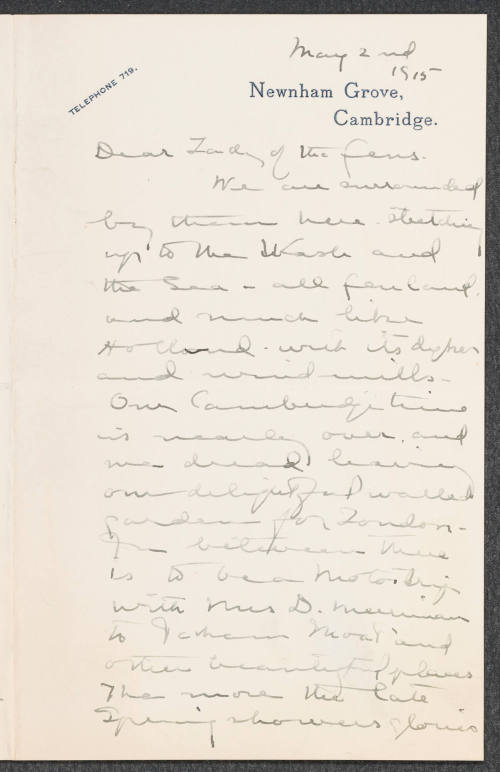 May 2nd
1915
TELEPHONE 719.
Newnham Grove,
Cambridge.
Dear Lady of the fens.
We are surrounded
by them here stretching
up to the Wash and
the Sea - all fenland,
and much like
Holland - with its dykes
and wind mills -
Our Cambridge time
is nearly over, and
we dread leaving
our delightful walled
garden for London -
In between there
is to be a Motor trip
with Mrs D. Merriman
to Ightham Moat and
other beautiful places
The more the late
Spring showers glories